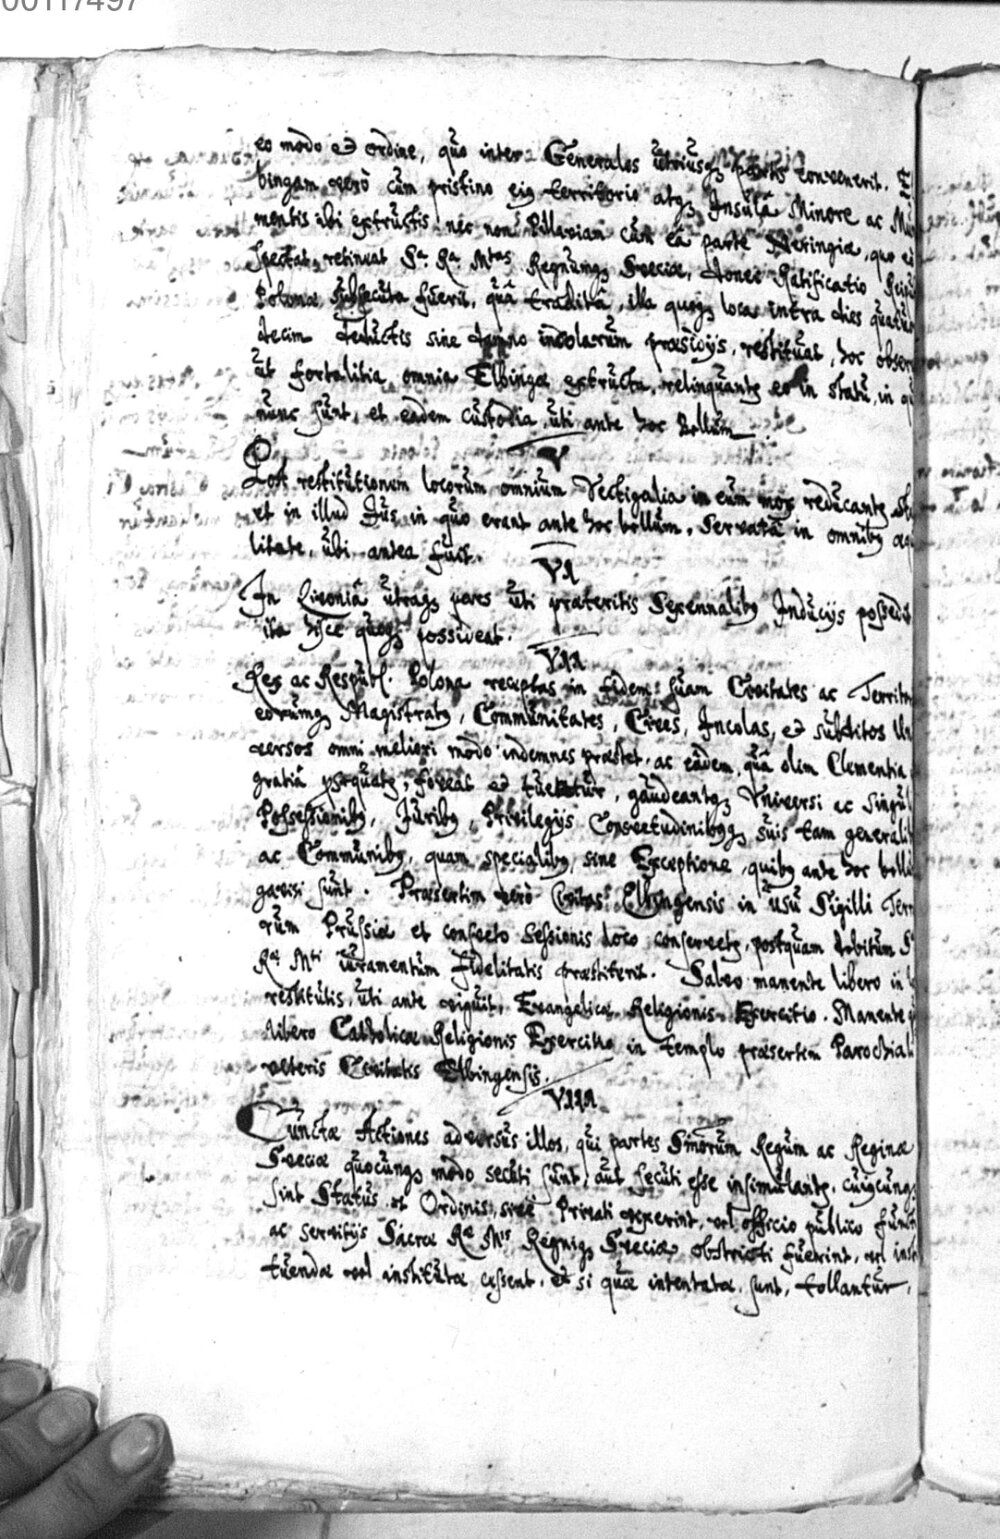 00117497
eo modo et ordine, quo inter Generales utriusq partis convenerit. El
bingam verò cum pristino eiq territorio atq Insulâ Minore ac Mu
mentis ibi extructis nec non Pillaviam cum eâ parte Neringiæ, quo eò
spectat, retineat Sa. Ra. Mtas Regnumq Sveciæ, donec Ratificatio Reipu
Polonæ subsecuta fuerit, quâ traditâ, illa quoq loca intra dies quatuor
decim deductis sine damno incolarum præsidijs, restituat, hoc obser
ut fortalitia omnia Elbingæ extructa, relinquantq eo in statu, in q
nunc sunt, et eadem custodia, uti ante hoc Bellum
V
Post restitutionem locorum omnium Vectigalia in eum mox reducantq st
et in illud Jus, in quo erant ante hoc bellum, Servatâ in omnibq æq
litate, ubi antea fuit.
VI
In Livoniâ utraq pars uti præteritis Sexennalibq Inducijs possedit
ita hisce quoq possideat.
VII
Rex ac Respubl. Polona receptas in fidem suam Civitates ac Territor
eorumq Magistratq, Communitates, Cives, Incolas, et subditos Un
versos omni meliori modo indemnes præstet, ac eâdem, quâ olim Clementia
gratiâ psequatq, foveat et tueatur, gaudeantq Universi ac Singul
Possessionibq, Juribq, Privilegijs Consvetudinibqq suis tam generalib
ac Communibq, quam specialibq, sine Exceptione, quibq ante hoc bellu
gavisi sunt. Præsertim verò Civitas Elbingensis in usu Sigilli Terr
rum Prussiæ et consveto Sessionis loco conservetq, postquam debitum S
Ræ Mti iuramentum fidelitatis præstiterit. Salvo manente libero in
restitutis, uti ante viguit, Evangelicæ Religionis Exercitio. Manente
libero Catholicæ Religionis Exercitio in templo præsertim Parochiali
veteris Civitatis Elbingensis.
VIII.
Cunctæ Actiones adversus illos, qui partes Smorum Regum ac Reginæ
Sveciæ quocunq modo secuti sunt, aut secuti esse insimulantq, cuiqcunq
sint Status et Ordinis, sive Privati vixerint, vel officio publico functi
ac servitijs Sacræ Ræ Mtis Regniq Sveciæ obstricti fuerint, vel insti
tuendæ vel institutæ cessent, et si quæ intentatæ sunt, tollantur,